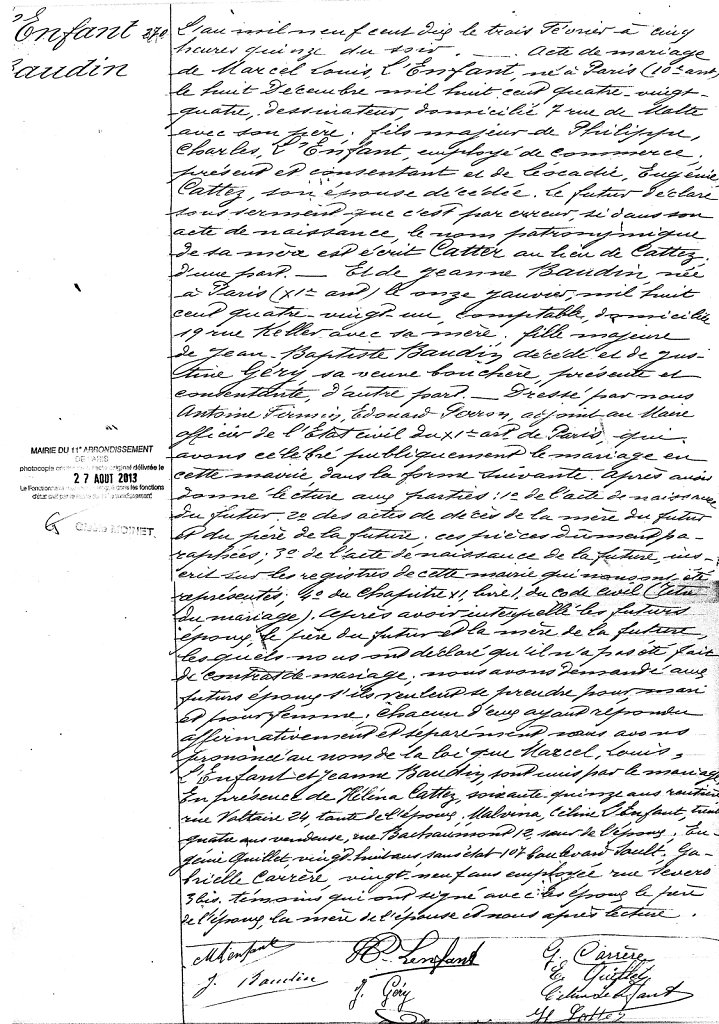 L'Enfant 270
Baudin
L'an mil neuf cent dix le trois Février à cinq
heures quinze du soir. — Acte de mariage
de Marcel Louis, L'Enfant, né à Paris (10e arrt)
le huit Décembre mil huit cent quatre-vingt-
quatre, dessinateur, domicilié 7 rue de Malte
avec son père; fils majeur de Philippe,
Charles, L'Enfant, employé de commerce,
présent et consentant et de Léocadie, Eugénie
Cattez, son épouse décédée. Le futur déclare
sous serment que c'est par erreur, si dans son
acte de naissance, le nom patronymique
de sa mère est écrit Catter au lieu de Cattez.
d'une part. — Et de Jeanne Baudin née
à Paris (XIe arrt) le onze Janvier, mil huit
cent quatre-vingt un, comptable, domiciliée
19 rue Keller avec sa mère; fille majeure
de Jean-Baptiste Baudin, décédé et de Jus-
tine Géry, sa veuve bouchère, présente et
consentante, d'autre part. — Dressé par nous
Antoine Firmin, Edouard Perron, adjoint au Maire
officier de l'Etat civil du XIe arrt de Paris, qui
avons célébré publiquement le mariage en
cette mairie, dans la forme suivante. Après avoir
donné lecture aux parties: 1° de l'acte de naissance
du futur, 2° des actes de décès de la mère du futur
et du père de la future; ces pièces dûment pa-
raphées; 3° de l'acte de naissance de la future, ins-
crit sur les registres de cette mairie qui nous ont été
représentés; 4° du Chapitre VI, livre 1, du code civil (Titre
du mariage). Après avoir interpellé les futurs
époux, le père du futur et la mère de la future,
lesquels nous ont déclaré qu'il n'a pas été fait
de contrat de mariage; nous avons demandé aux
futurs époux s'ils veulent se prendre pour mari
et pour femme; chacun d'eux ayant répondu
affirmativement et séparément nous avons
prononcé au nom de la loi que Marcel, Louis,
L'Enfant et Jeanne Baudin, sont unis par le mariage.
En présence de Héléna Cattez, soixante quinze ans rentière
rue Voltaire 24, tante de l'époux, Malvina, Céline L'Enfant, trente
quatre ans vendeuse, rue Bachaumont 12, sœur de l'époux, Eu-
génie Quillet vingt-huit ans sans état 107 boulevard Soult, Ga-
brielle Carrère, vingt-neuf ans employée rue Severo
3 bis, témoins qui ont signé avec les époux le père
de l'époux, la mère de l'épouse et nous après lecture.
MAIRIE DU 11e ARRONDISSEMENT
DE PARIS
original délivrée le
27 AOUT 2013
MOINET
MLenfant
J. Baudin
Ph. Lenfant
J. Géry
G. Carrère
E. Quillet
Céline L'Enfant
H Cattez